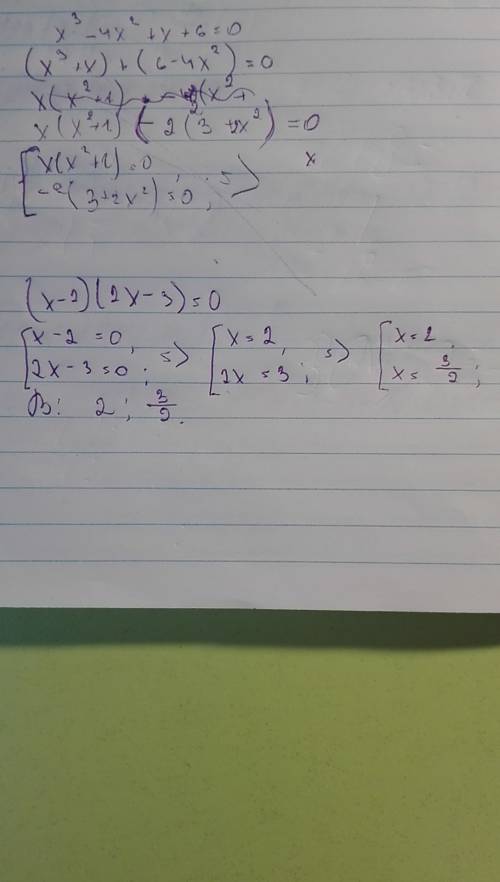 x³ - 4x² + x + 6 = 0
(x³ + x) + (6 - 4x²) = 0
x(x² + 1) - (x² +
x(x² + 1) (- 2(3 + 2x²) = 0
[ x(x² + 1) = 0, => x
-2(3 + 2x²) = 0;
(x - 2)(2x - 3) = 0
[ x - 2 = 0, => [ x = 2, => [ x = 2,
2x - 3 = 0; 2x = 3; x = 3/2;
В: 2; 3/2.